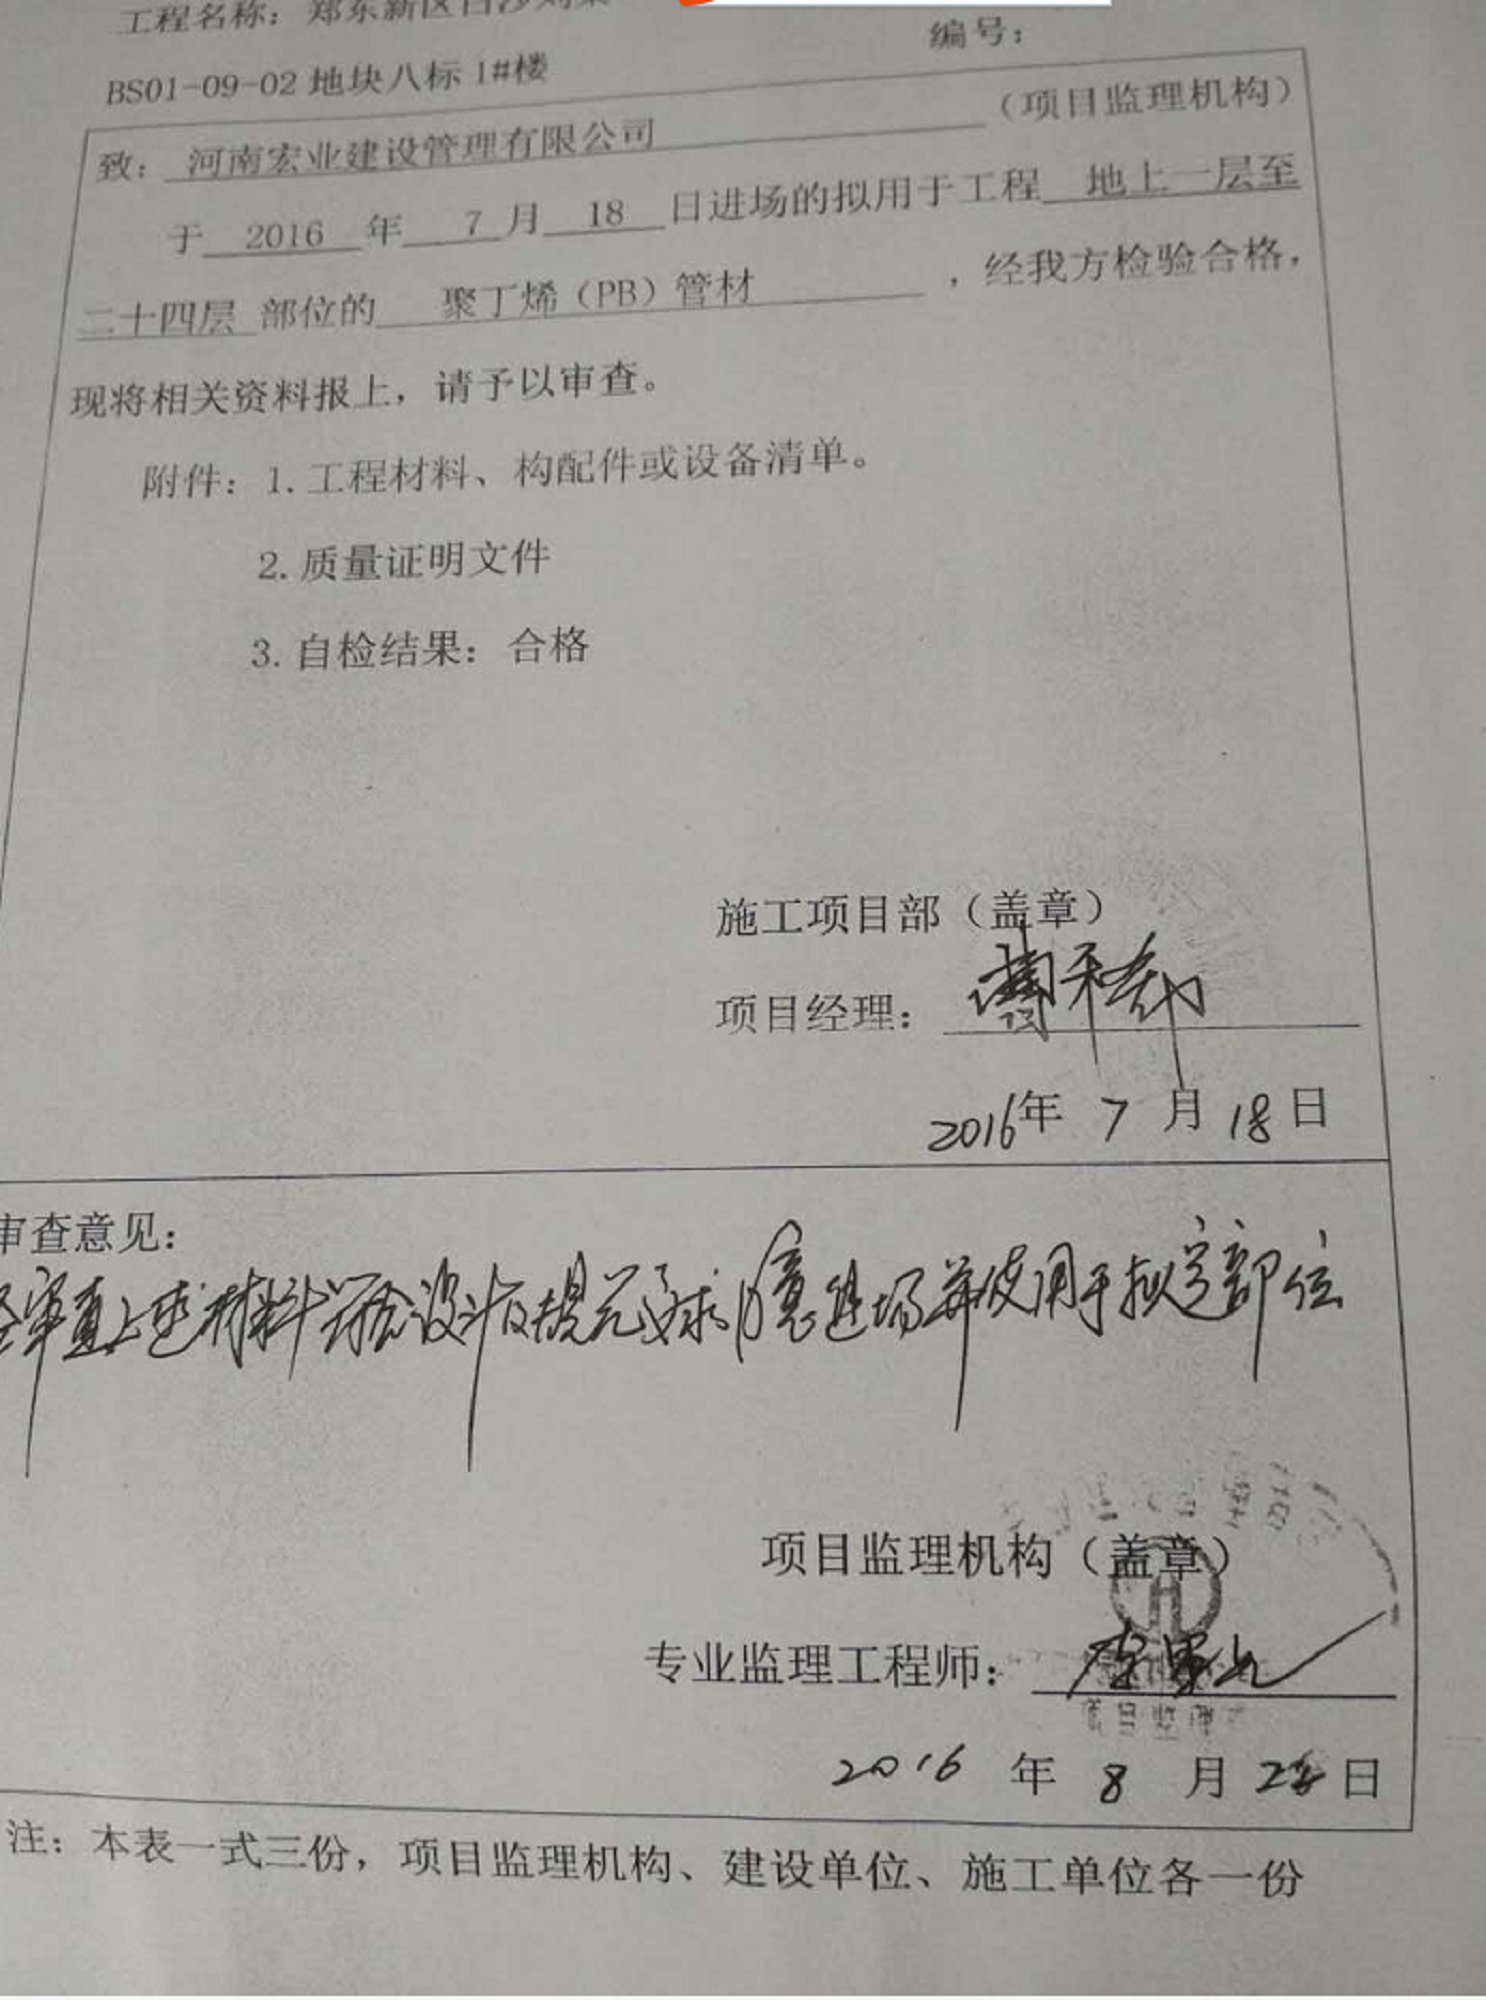 工程名称：郑东新区白沙刘集
编号：
BS01-09-02 地块八标 1#楼
致：河南宏业建设管理有限公司（项目监理机构）
于 2016 年 7 月 18 日进场的拟用于工程 地上一层至
二十四层 部位的 聚丁烯（PB）管材 ，经我方检验合格，
现将相关资料报上，请予以审查。
附件：1. 工程材料、构配件或设备清单。
2. 质量证明文件
3. 自检结果：合格
施工项目部（盖章）
项目经理：
2016年 7 月 18 日
审查意见：
经审查上述材料符合设计及规范要求同意进场并使用于拟定部位
项目监理机构（盖章）
专业监理工程师：
2016 年 8 月 日
注：本表一式三份，项目监理机构、建设单位、施工单位各一份